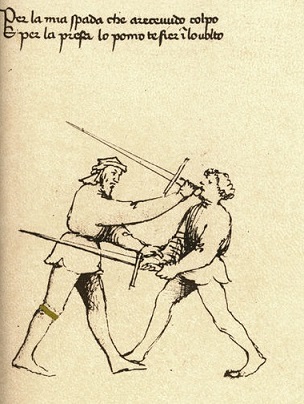 Per la mia spada che a receuudo colpo
E per la presa lo pomo te fier i lo uolto